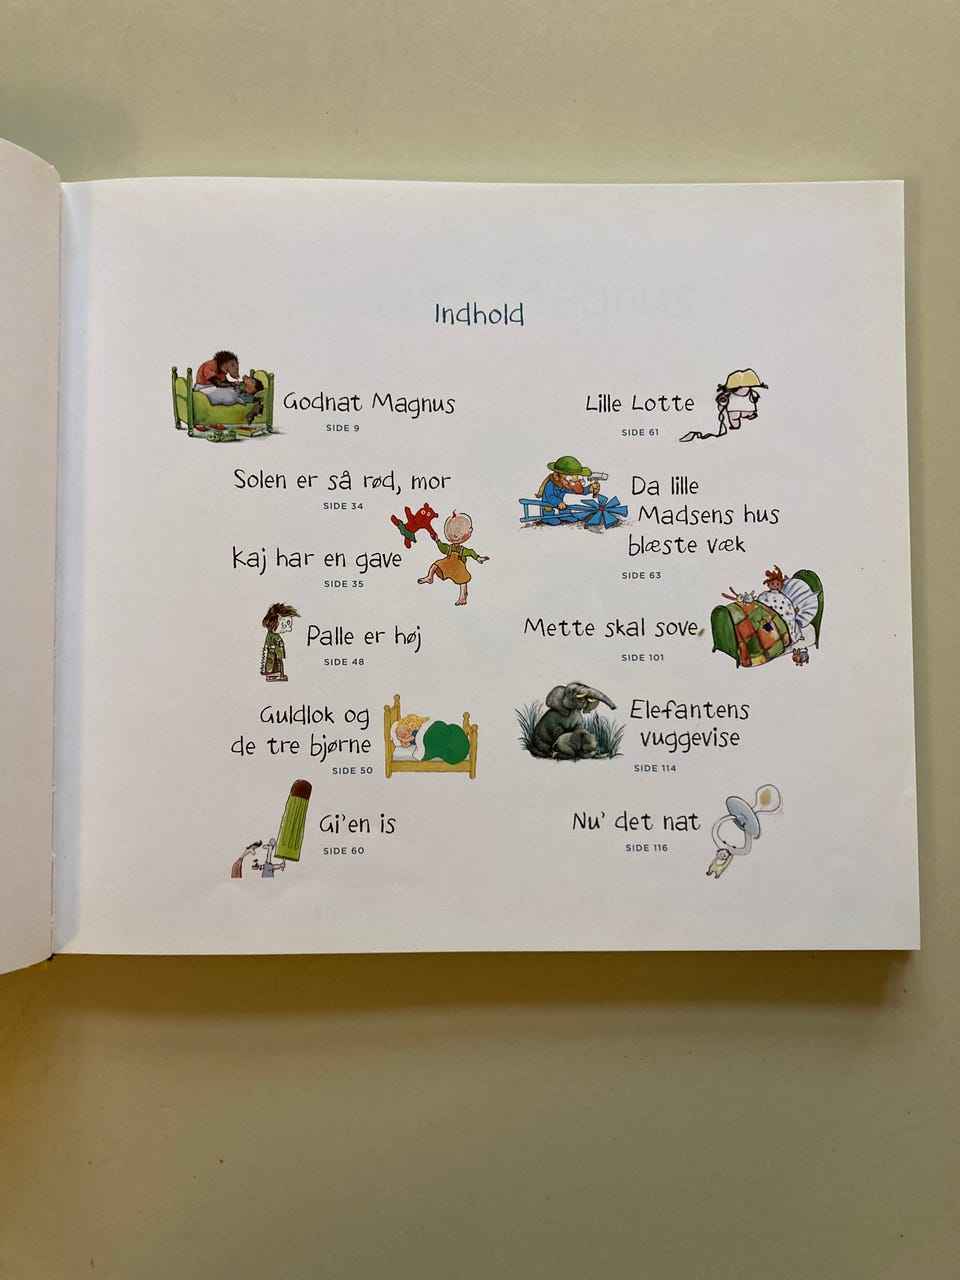 Indhold
Godnat Magnus
SIDE 9
Solen er så rød, mor
SIDE 34
Kaj har en gave
SIDE 35
Palle er høj
SIDE 48
Guldlok og
de tre bjørne
SIDE 50
Gi'en is
SIDE 60
Lille Lotte
SIDE 61
Da lille
Madsens hus
blæste væk
SIDE 63
Mette skal sove
SIDE 101
Elefantens
vuggevise
SIDE 114
Nu' det nat
SIDE 116